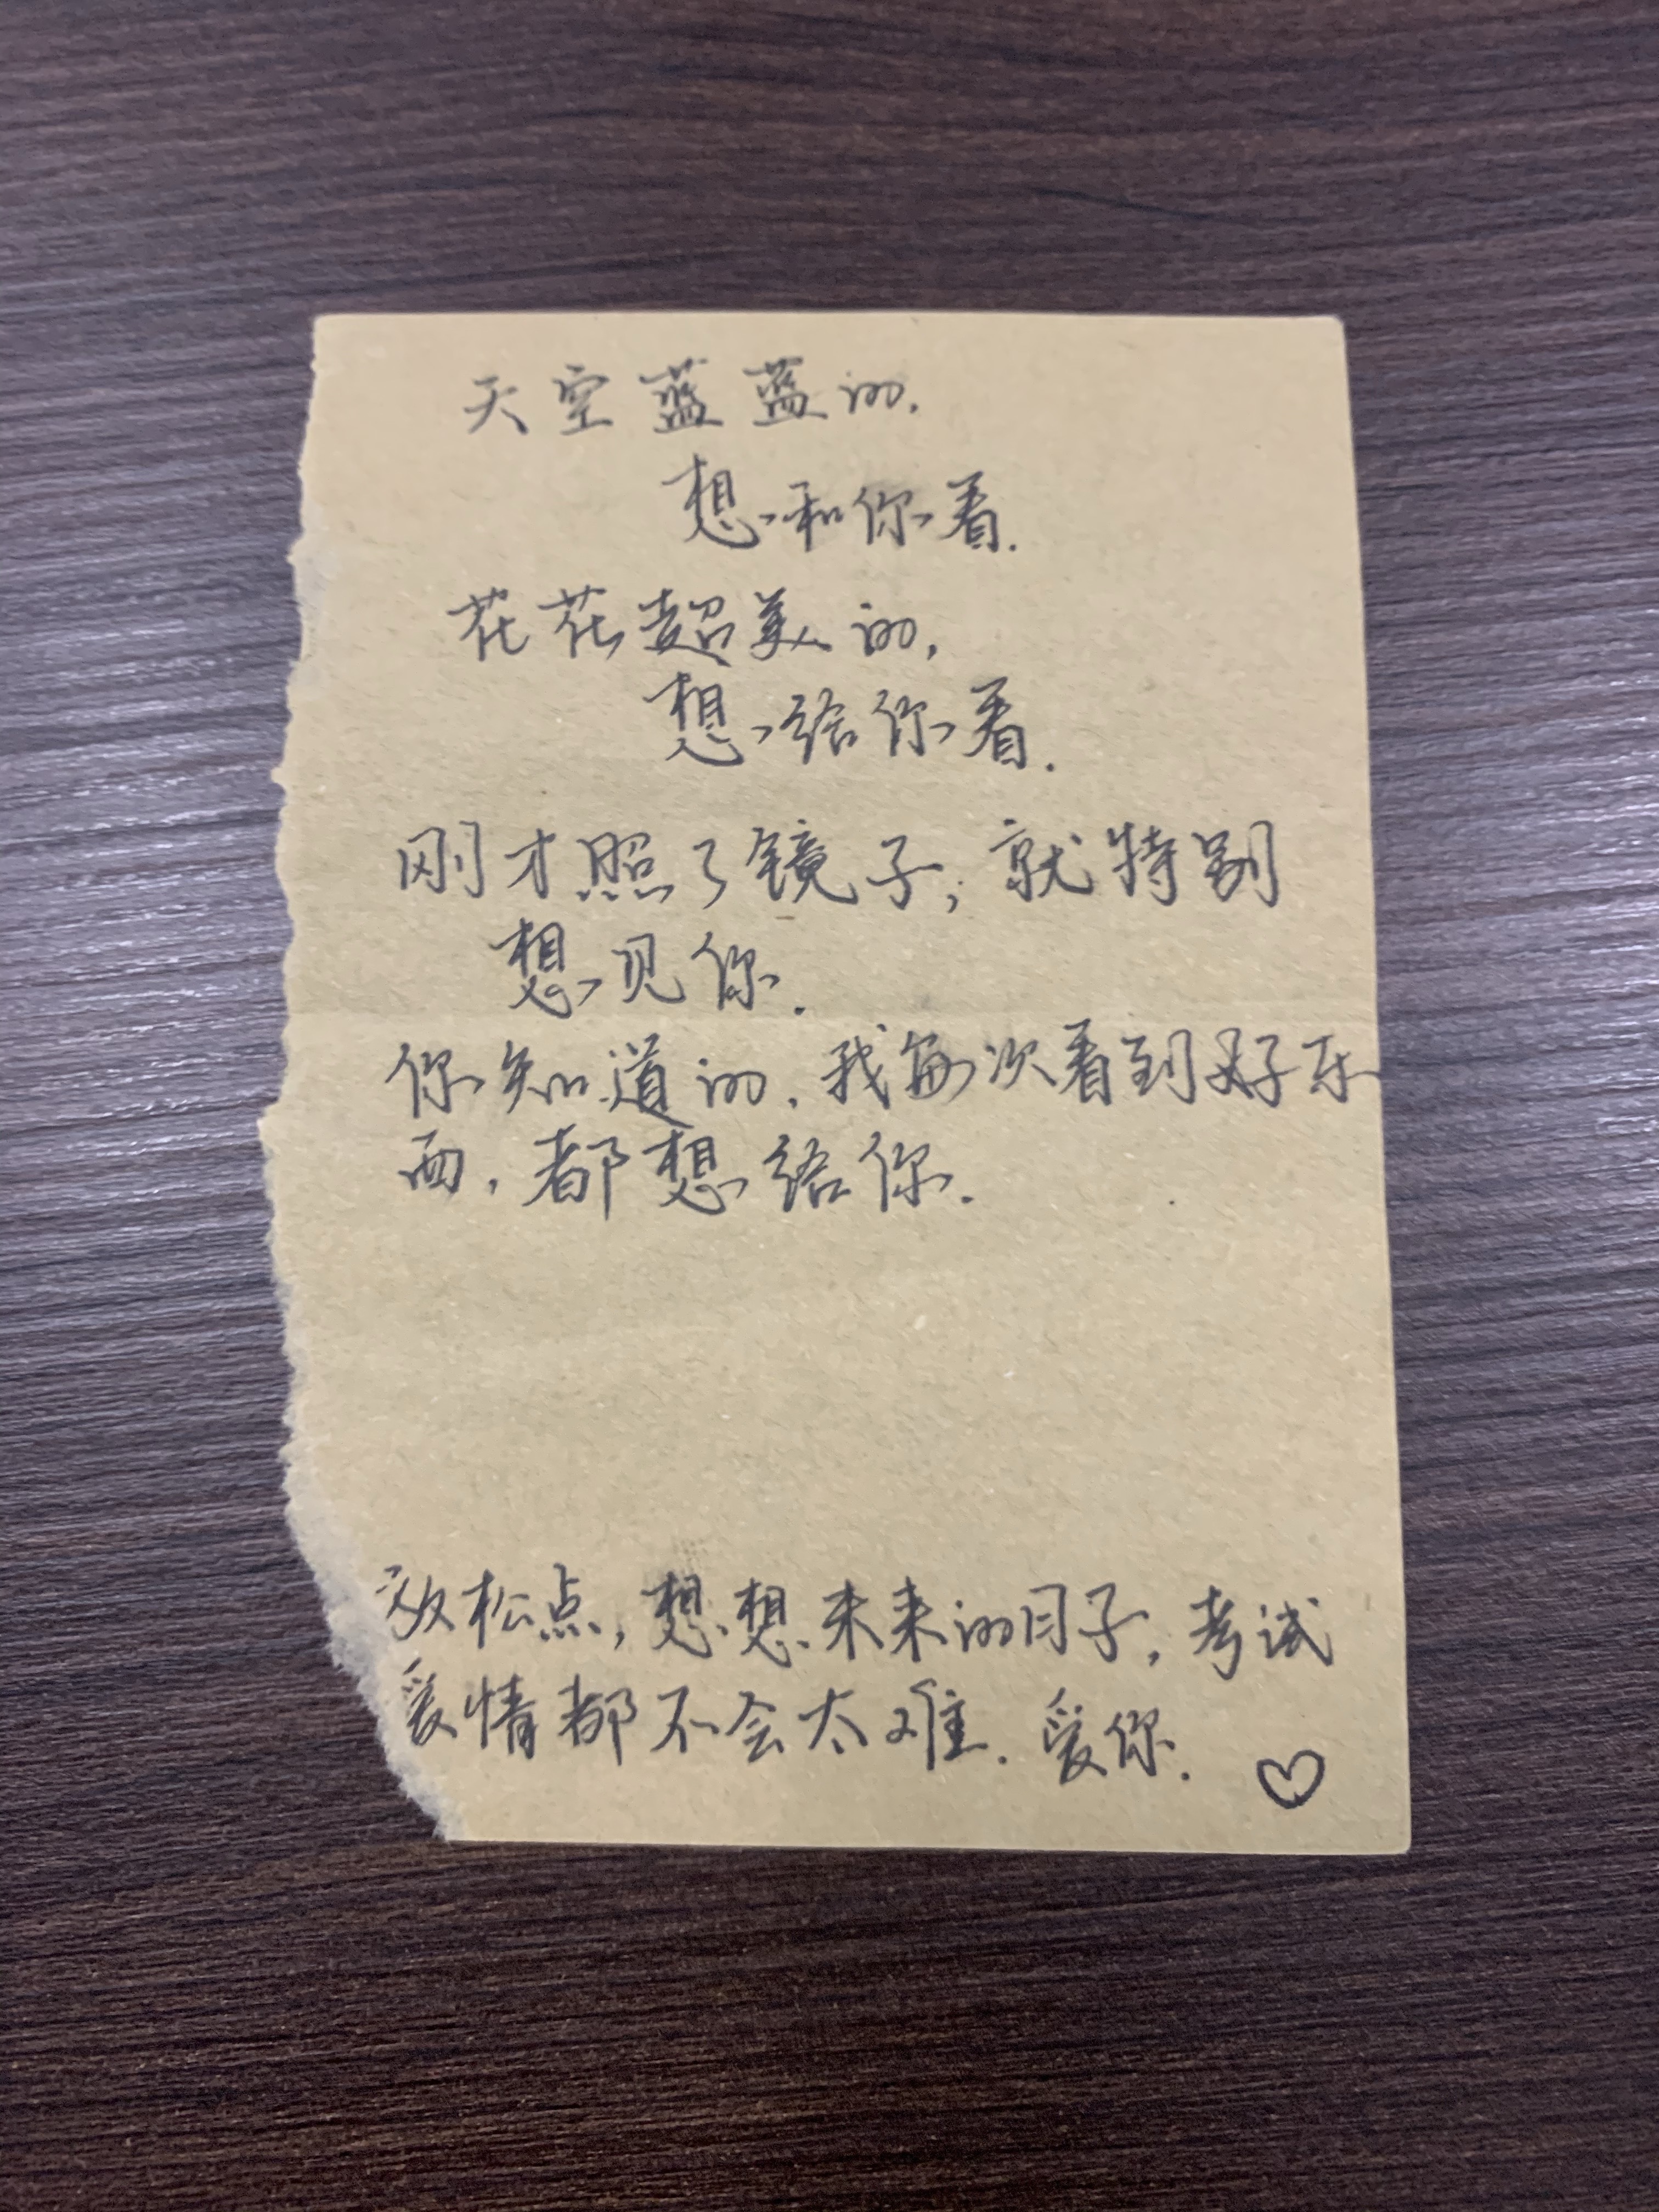 天空蓝蓝的.
想和你看.
花花超美的,
想给你看.
刚才照了镜子,就特别
想见你.
你知道的.我每次看到好东
西,都想给你.
放松点,想想未来的日子,考试
爱情都不会太难.爱你.♡